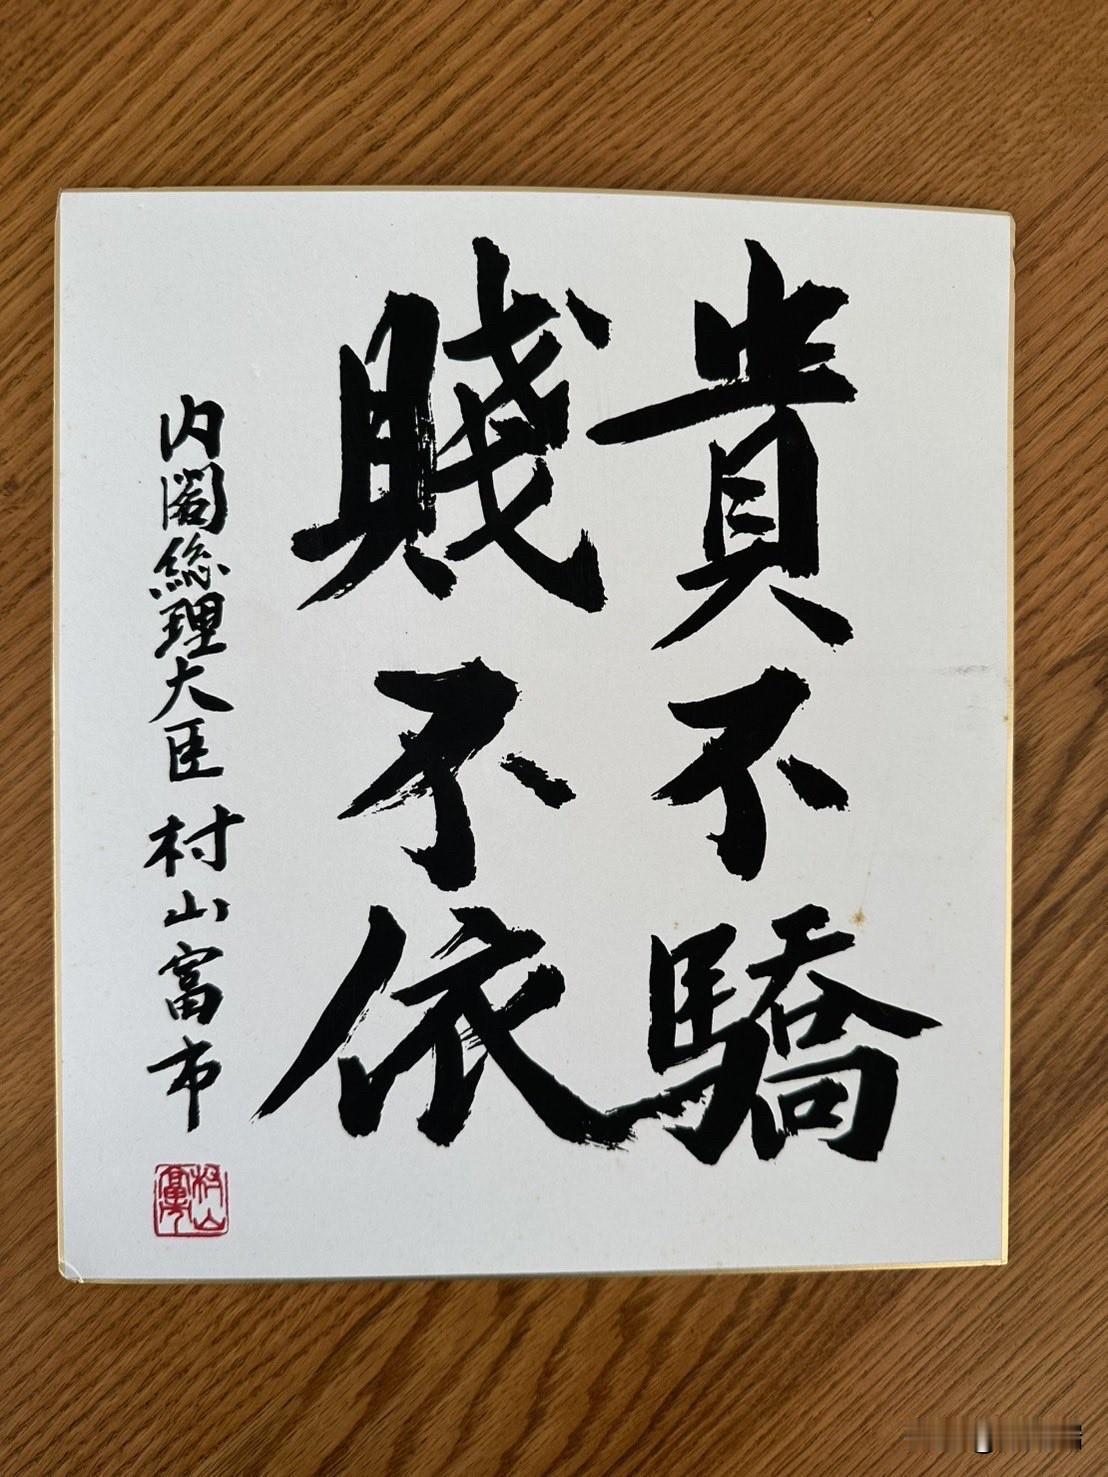 貴不驕
賤不依
内閣総理大臣 村山富市
村山富市